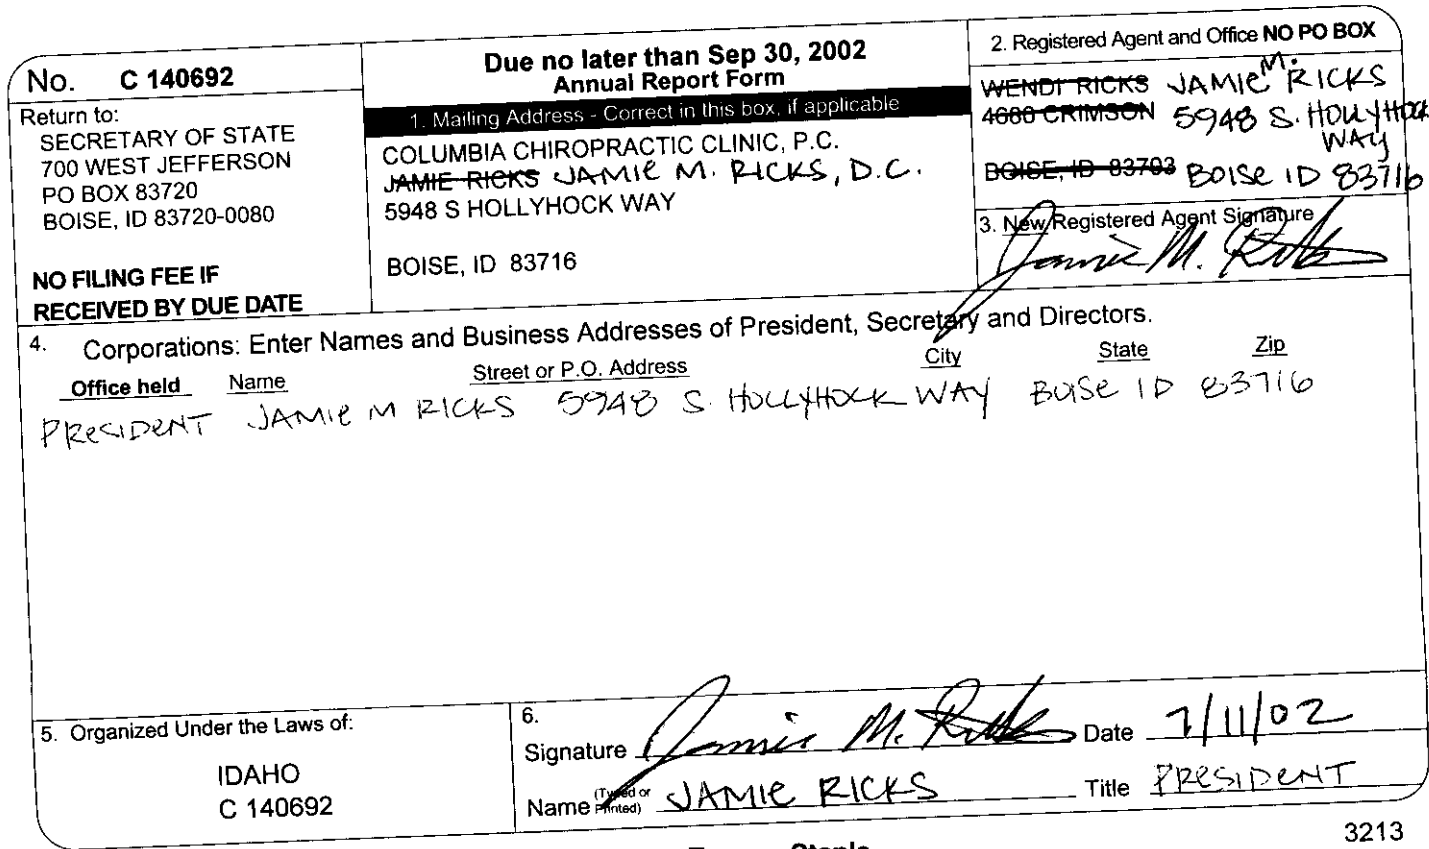 No. C 140692
Return to:
SECRETARY OF STATE
700 WEST JEFFERSON
PO BOX 83720
BOISE, ID 83720-0080
NO FILING FEE IF
RECEIVED BY DUE DATE
Due no later than Sep 30, 2002
Annual Report Form
1. Mailing Address - Correct in this box, if applicable
COLUMBIA CHIROPRACTIC CLINIC, P.C.
JAMIE RICKS JAMIE M. RICKS, D.C.
5948 S HOLLYHOCK WAY
BOISE, ID 83716
2. Registered Agent and Office NO PO BOX
WENDI RICKS JAMIE M. RICKS
4680 CRIMSON 5948 S. HOLLYHOCK
WAY
BOISE, ID 83703 BOISE ID 83716
3. New Registered Agent Signature
Jamie M. Ricks
4. Corporations: Enter Names and Business Addresses of President, Secretary and Directors.
Office held Name Street or P.O. Address City State Zip
PRESIDENT JAMIE M RICKS 5948 S. HOLLYHOCK WAY BOISE ID 83716
5. Organized Under the Laws of:
IDAHO
C 140692
6.
Signature Jamie M. Ricks Date 7/11/02
Name (Typed or Printed) JAMIE RICKS Title PRESIDENT
3213